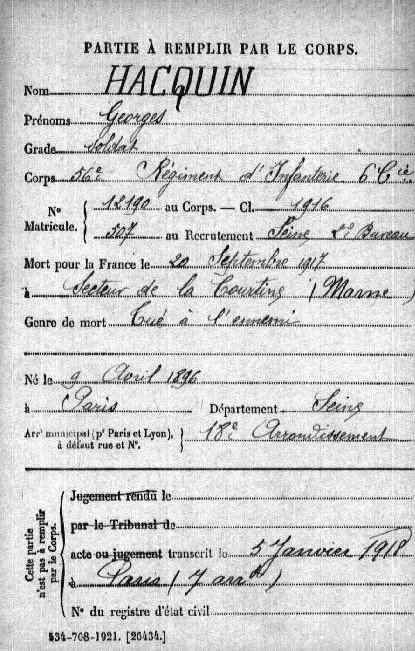 PARTIE À REMPLIR PAR LE CORPS.
Nom HACQUIN
Prénoms Georges
Grade soldat
Corps 56e Régiment d'Infanterie 6e Cie
N° 12190 au Corps. — Cl. 1916
Matricule. 507 au Recrutement Seine 2e Bureau
Mort pour la France le 20 Septembre 1917
à Secteur de la Courtine (Marne)
Genre de mort Tué à l'ennemi
Né le 9 Avril 1896
à Paris Département Seine
Arrt municipal (pr Paris et Lyon), à défaut rue et N°. 18e Arrondissement
Cette partie n'est pas à remplir par le Corps.
Jugement rendu le
par le Tribunal de
acte ou jugement transcrit le 5 Janvier 1918
à Paris (7 arrt)
N° du registre d'état civil
534-708-1921. [26434.]